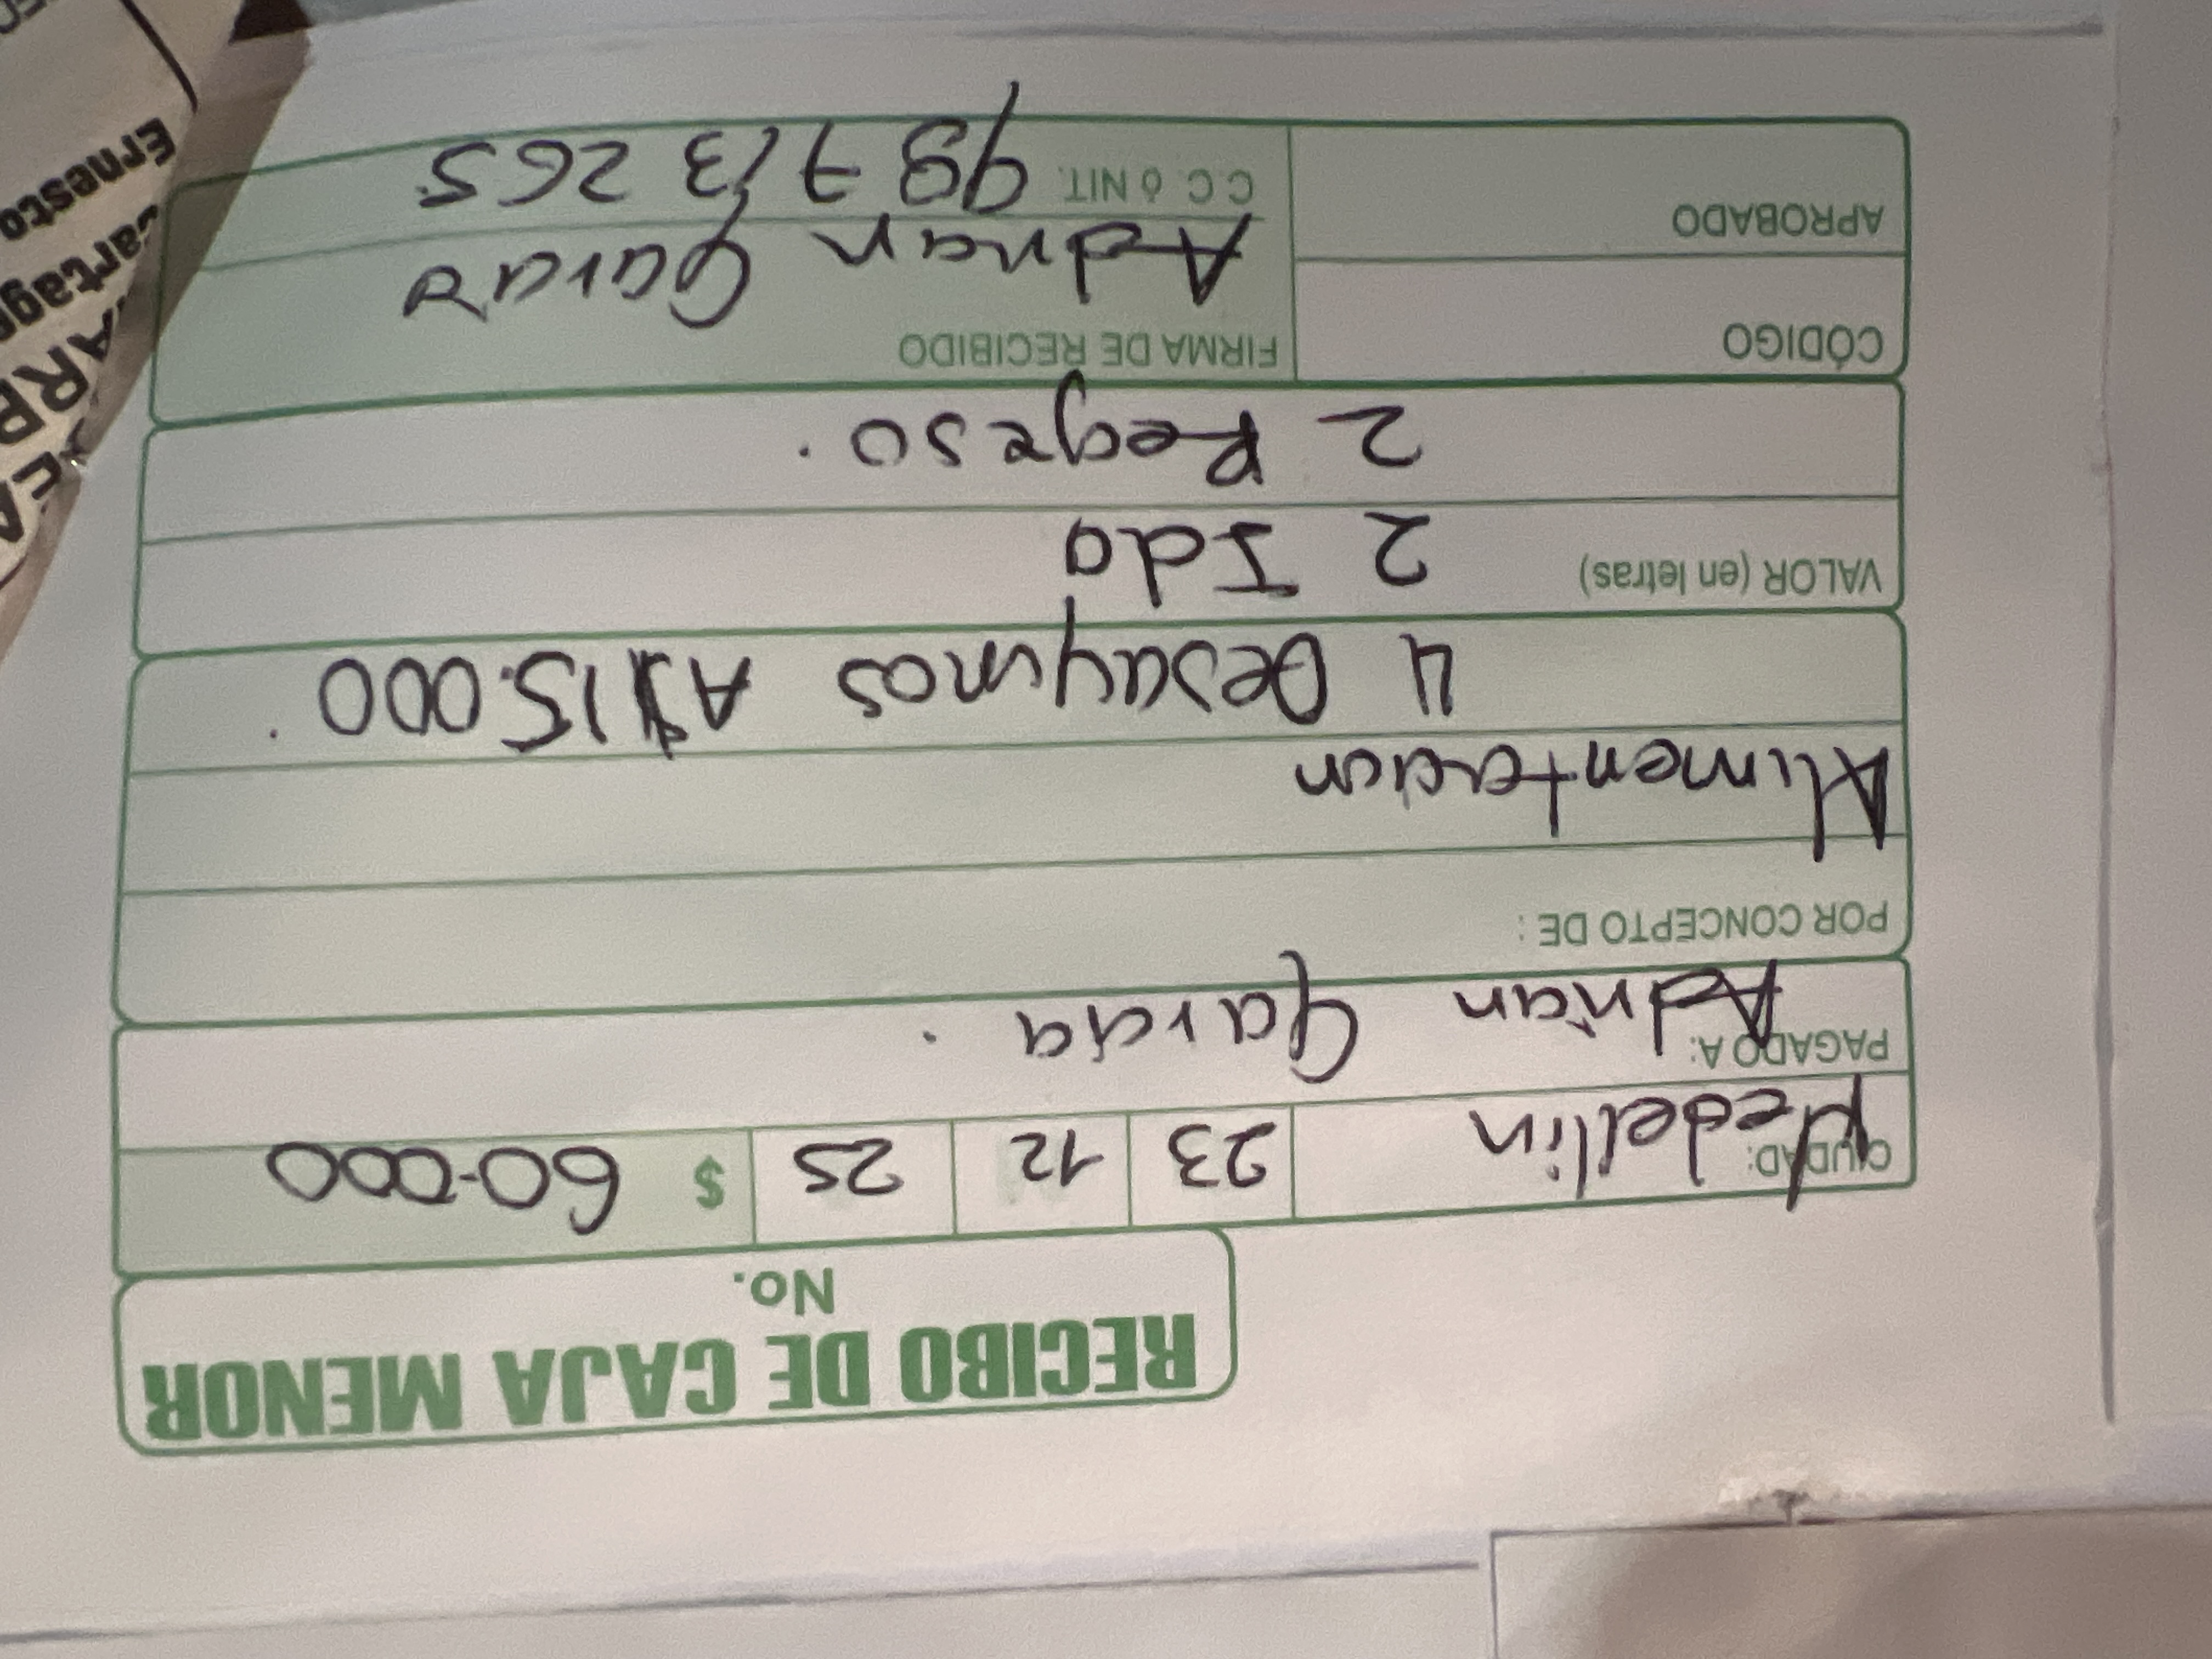 RECIBO DE CAJA MENOR
No.
CIUDAD: Medellin 23 12 25 $ 60.000
PAGADO A: Adrian Garcia.
POR CONCEPTO DE:
Alimentacion
4 Desayunos A $15.000.
VALOR (en letras) 2 Ida
2 Regeso.
CÓDIGO
APROBADO
FIRMA DE RECIBIDO
Adrian Garcia
C.C. ó NIT. 98 713 265
Cartag
Ernesto